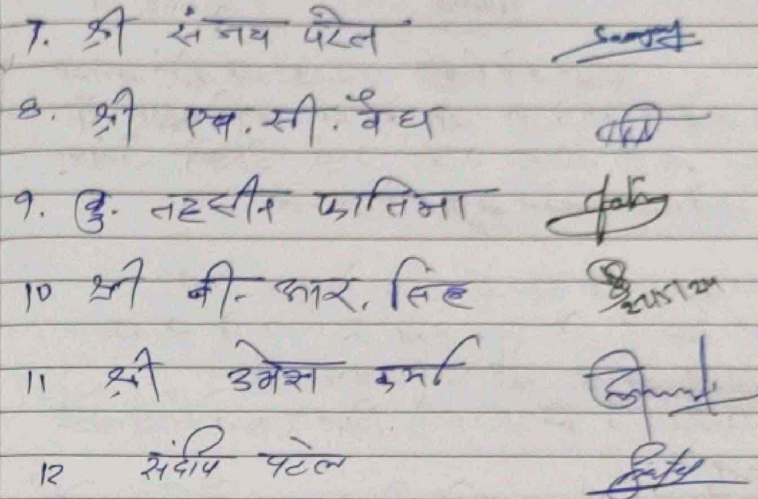 7. श्री संजय पटेल Sanjay
8. श्री एच. सी. वैद्य
9. कु. तहसीन फातिमा
10 श्री बी. आर. सिंह 22/5/24
11 श्री उमेश वर्मा
12 संदीप पटेल